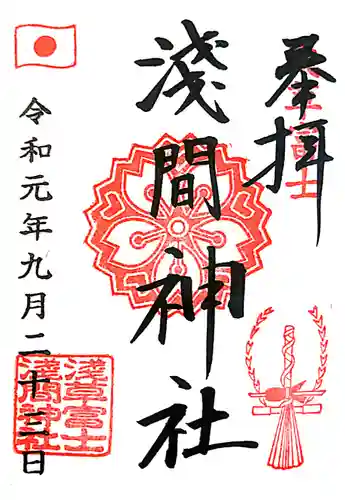 奉拝
富士
淺間神社
令和元年九月二十三日
淺草富士
淺間神社